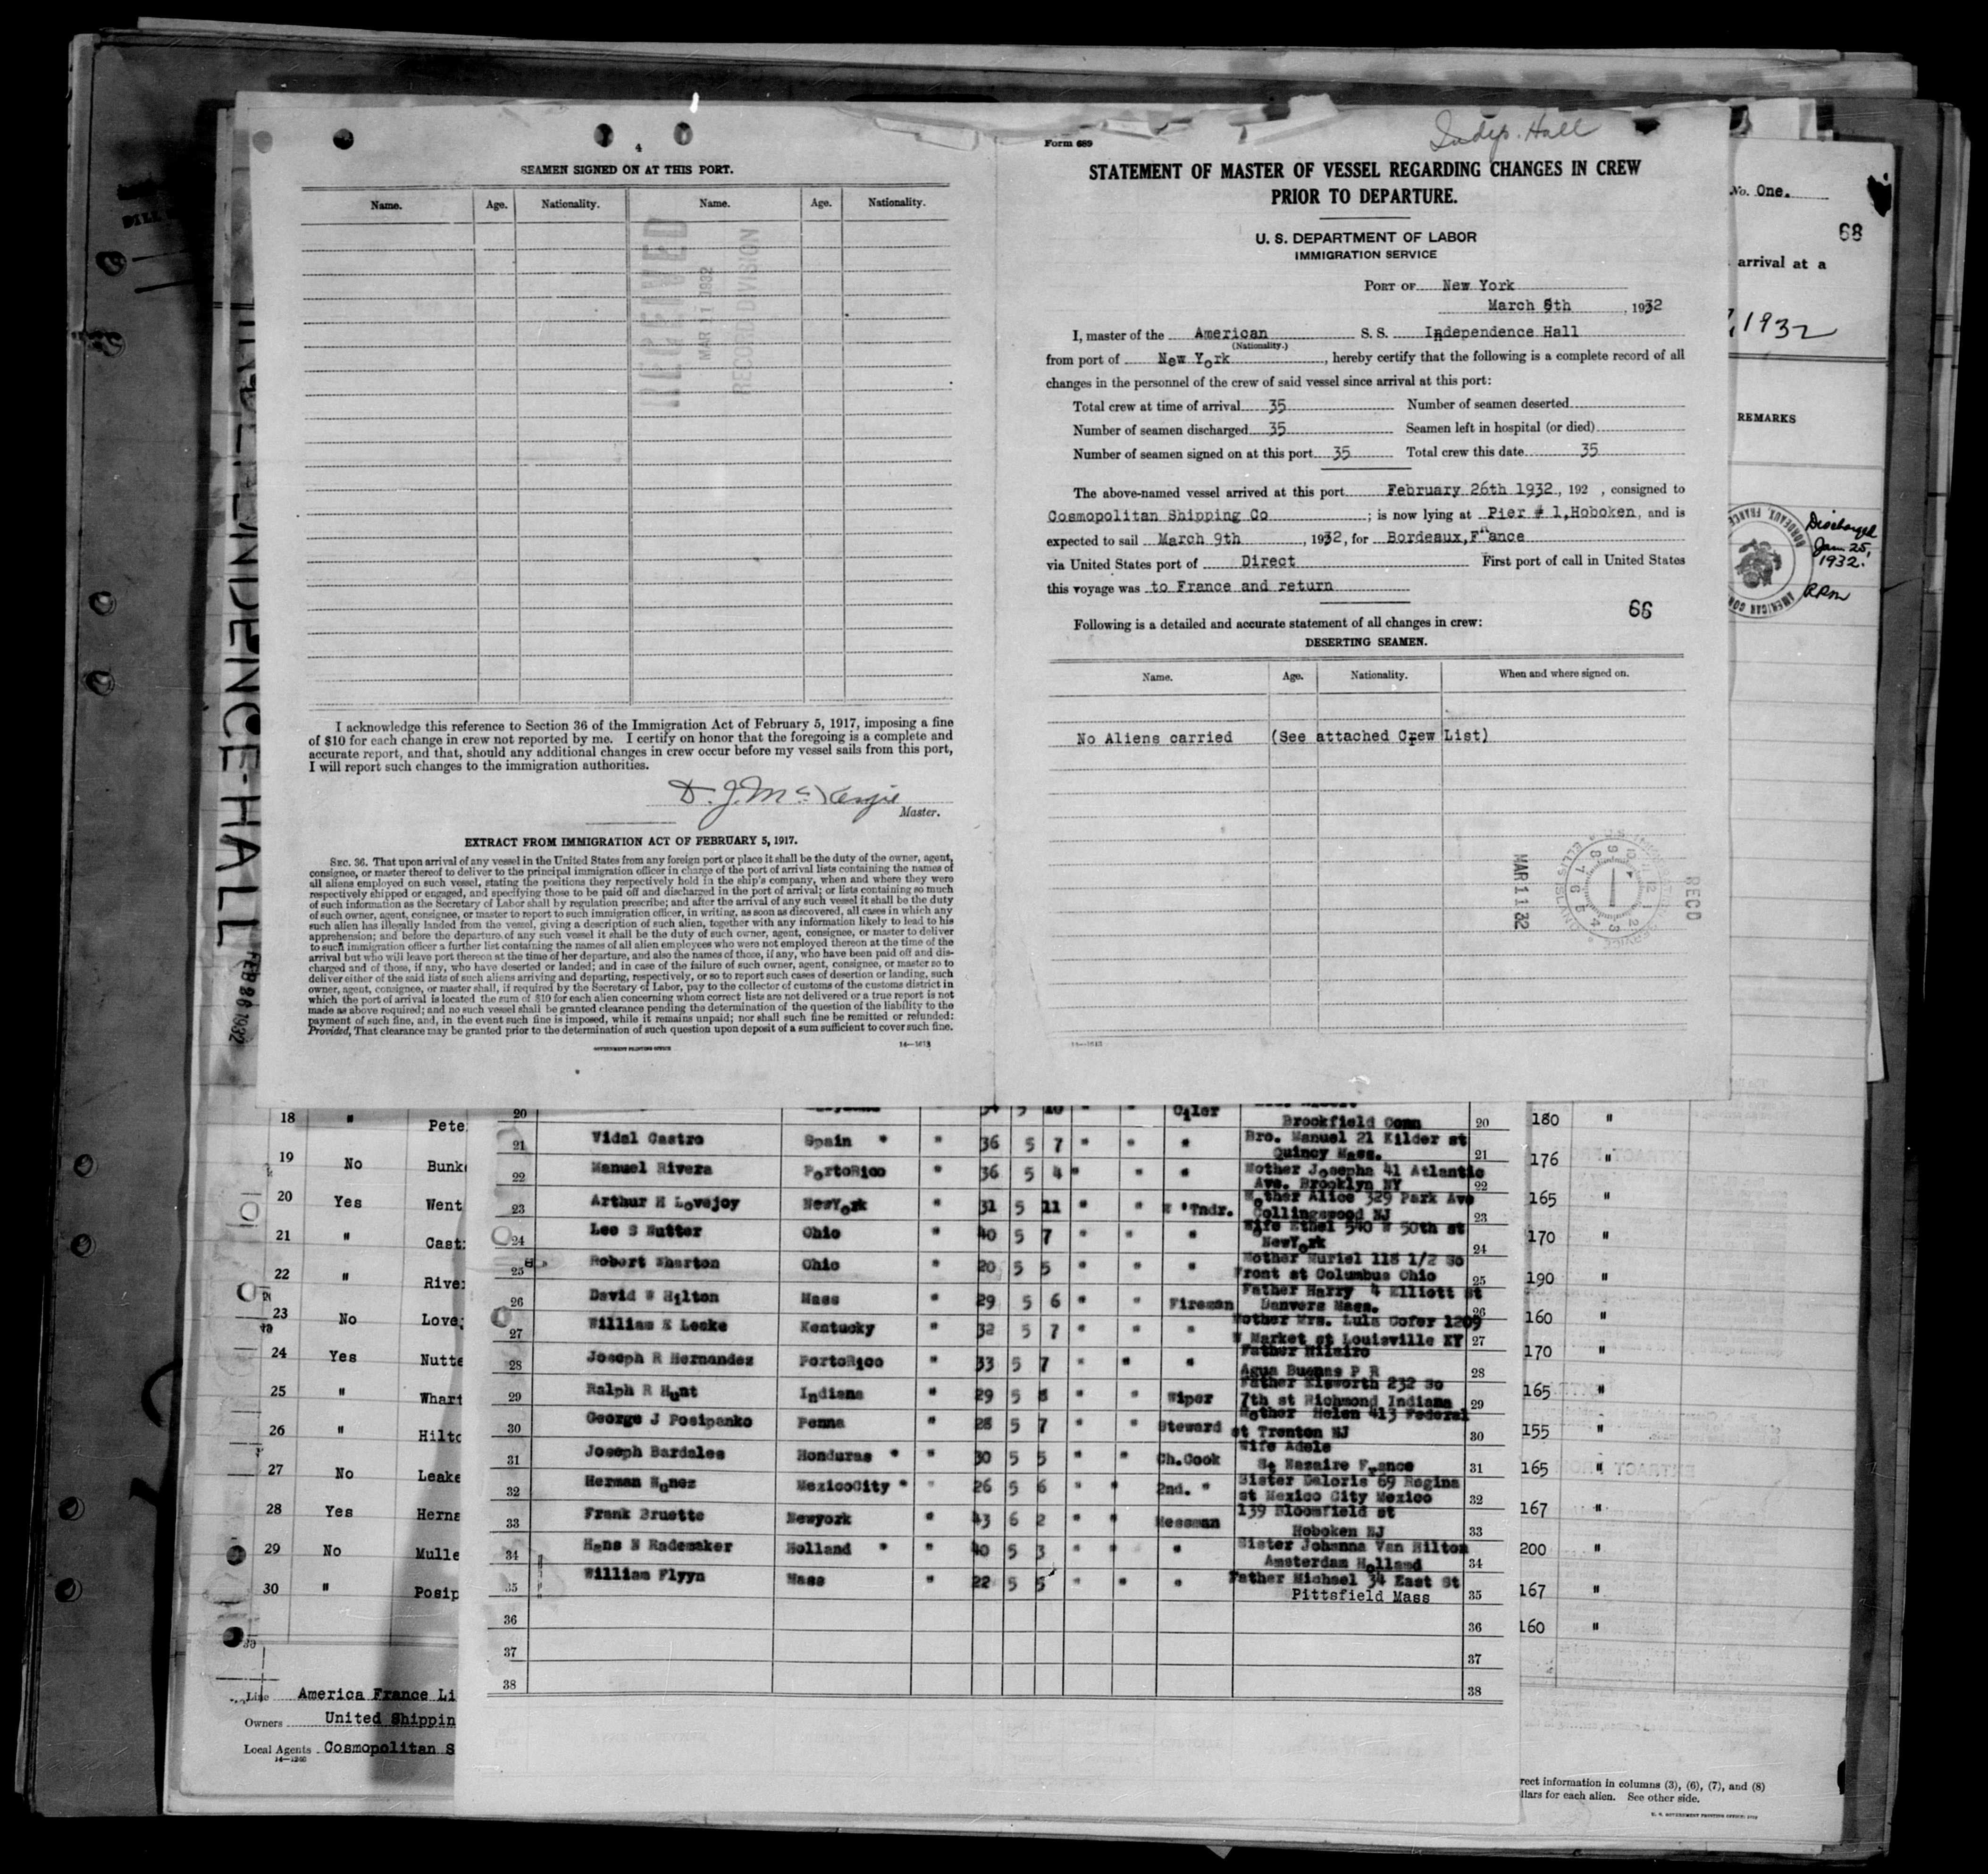 4
SEAMEN SIGNED ON AT THIS PORT.
Name. Age. Nationality. Name. Age. Nationality.
RECEIVED
MAR 11 1932
RECORD DIVISION
I acknowledge this reference to Section 36 of the Immigration Act of February 5, 1917, imposing a fine
of $10 for each change in crew not reported by me. I certify on honor that the foregoing is a complete and
accurate report, and that, should any additional changes in crew occur before my vessel sails from this port,
I will report such changes to the immigration authorities.
Master.
EXTRACT FROM IMMIGRATION ACT OF FEBRUARY 5, 1917.
SEC. 36. That upon arrival of any vessel in the United States from any foreign port or place it shall be the duty of the owner, agent,
consignee, or master thereof to deliver to the principal immigration officer in charge of the port of arrival lists containing the names of
all aliens employed on such vessel, stating the positions they respectively hold in the ship's company, when and where they were
respectively shipped or engaged, and specifying those to be paid off and discharged in the port of arrival; or lists containing so much
of such information as the Secretary of Labor shall by regulation prescribe; and after the arrival of any such vessel it shall be the duty
of such owner, agent, consignee, or master to report to such immigration officer, in writing, as soon as discovered, all cases in which any
such alien has illegally landed from the vessel, giving a description of such alien, together with any information likely to lead to his
apprehension; and before the departure of any such vessel it shall be the duty of such owner, agent, consignee, or master to deliver
to such immigration officer a further list containing the names of all alien employees who were not employed thereon at the time of the
arrival but who will leave port thereon at the time of her departure, and also the names of those, if any, who have been paid off and dis-
charged and of those, if any, who have deserted or landed; and in case of the failure of such owner, agent, consignee, or master so to
deliver either of the said lists of such aliens arriving and departing, respectively, or so to report such cases of desertion or landing, such
owner, agent, consignee, or master shall, if required by the Secretary of Labor, pay to the collector of customs of the customs district in
which the port of arrival is located the sum of $10 for each alien concerning whom correct lists are not delivered or a true report is not
made as above required; and no such vessel shall be granted clearance pending the determination of the question of the liability to the
payment of such fine, and, in the event such fine is imposed, while it remains unpaid; nor shall such fine be remitted or refunded:
Provided, That clearance may be granted prior to the determination of such question upon deposit of a sum sufficient to cover such fine.
GOVERNMENT PRINTING OFFICE 14—1613
Indep. Hall
Form 689
STATEMENT OF MASTER OF VESSEL REGARDING CHANGES IN CREW
PRIOR TO DEPARTURE.
U. S. DEPARTMENT OF LABOR
IMMIGRATION SERVICE
PORT OF New York
March 8th , 1932
I, master of the American S. S. Independence Hall
(Nationality.)
from port of New York , hereby certify that the following is a complete record of all
changes in the personnel of the crew of said vessel since arrival at this port:
Total crew at time of arrival 35 Number of seamen deserted
Number of seamen discharged 35 Seamen left in hospital (or died)
Number of seamen signed on at this port 35 Total crew this date 35
The above-named vessel arrived at this port February 26th 1932, 192 , consigned to
Cosmopolitan Shipping Co ; is now lying at Pier # 1,Hoboken, and is
expected to sail March 9th , 1932, for Bordeaux,France
via United States port of Direct First port of call in United States
this voyage was to France and return
66
Following is a detailed and accurate statement of all changes in crew:
DESERTING SEAMEN.
Name. Age. Nationality. When and where signed on.
No Aliens carried (See attached Crew List)
MAR 11 32
RECD
14—1613
No. One.
68
arrival at a
1932
REMARKS
BORDEAUX, FRANCE
AMERICAN CON
Discharged
Jan. 25,
1932.
RRM
INDEPENDENCE-HALL
FEB 26 1932
18 " Pete
19 No Bunk
20 Yes Went
21 " Cast
22 " River
23 No Love
24 Yes Nutte
25 " Whart
26 " Hilto
27 No Leake
28 Yes Herna
29 No Mulle
30 " Posip
Line America France Li
Owners United Shippin
Local Agents Cosmopolitan S
14—1240
20 34 5 10 " " Oiler
Brookfield Conn 20
21 Vidal Castro Spain * " 36 5 7 " " " Bro. Manuel 21 Kilder st
Quincy Mass. 21
22 Manuel Rivera PortoRico " 36 5 4 " " " Mother Josepha 41 Atlantic
Ave. Brooklyn NY 22
23 Arthur H Lovejoy NewYork " 31 5 11 " " W 'Tndr. Mother Alice 329 Park Ave
Collingswood NJ 23
24 Lee S Nutter Ohio " 40 5 7 " " " Wife Ethel 540 W 50th st
NewYork 24
25 Robert Wharton Ohio " 20 5 5 " " " Mother Muriel 118 1/2 So
Front st Columbus Ohio 25
26 David W Hilton Mass " 29 5 6 " " Fireman Father Harry 4 Elliott st
Danvers Mass. 26
27 William E Leake Kentucky " 32 5 7 " " " Mother Mrs. Lula Cofer 1209
W Market st Louisville KY 27
28 Joseph R Hernandez PortoRico " 33 5 7 " " " Father Hilairo
Agua Buenas P R 28
29 Ralph R Hunt Indiana " 29 5 8 " " Wiper Father Elsworth 232 So
7th st Richmond Indiana 29
30 George J Posipanko Penna " 28 5 7 " " Steward Mother Helen 413 Federal
st Trenton NJ 30
31 Joseph Bardales Honduras * " 30 5 5 " " Ch.Cook Wife Adele
St Nazaire France 31
32 Herman Nunez MexicoCity * " 26 5 6 " " 2nd. " Sister Daloris 69 Regina
st Mexico City Mexico 32
33 Frank Bruette Newyork " 43 6 2 " " Messman 139 Bloomfield st
Hoboken NJ 33
34 Hans N Rademaker Holland * " 40 5 3 " " " Sister Johanna Van Hilton
Amsterdam Holland 34
35 William Flyyn Mass " 22 5 5 " " " Father Michael 34 East St
Pittsfield Mass 35
36 36
37 37
38 38
180 "
176 "
165 "
170 "
190 "
160 "
170 "
165 "
155 "
165 "
167 "
200 "
167 "
160 "
rect information in columns (3), (6), (7), and (8)
llars for each alien. See other side.
U. S. GOVERNMENT PRINTING OFFICE: